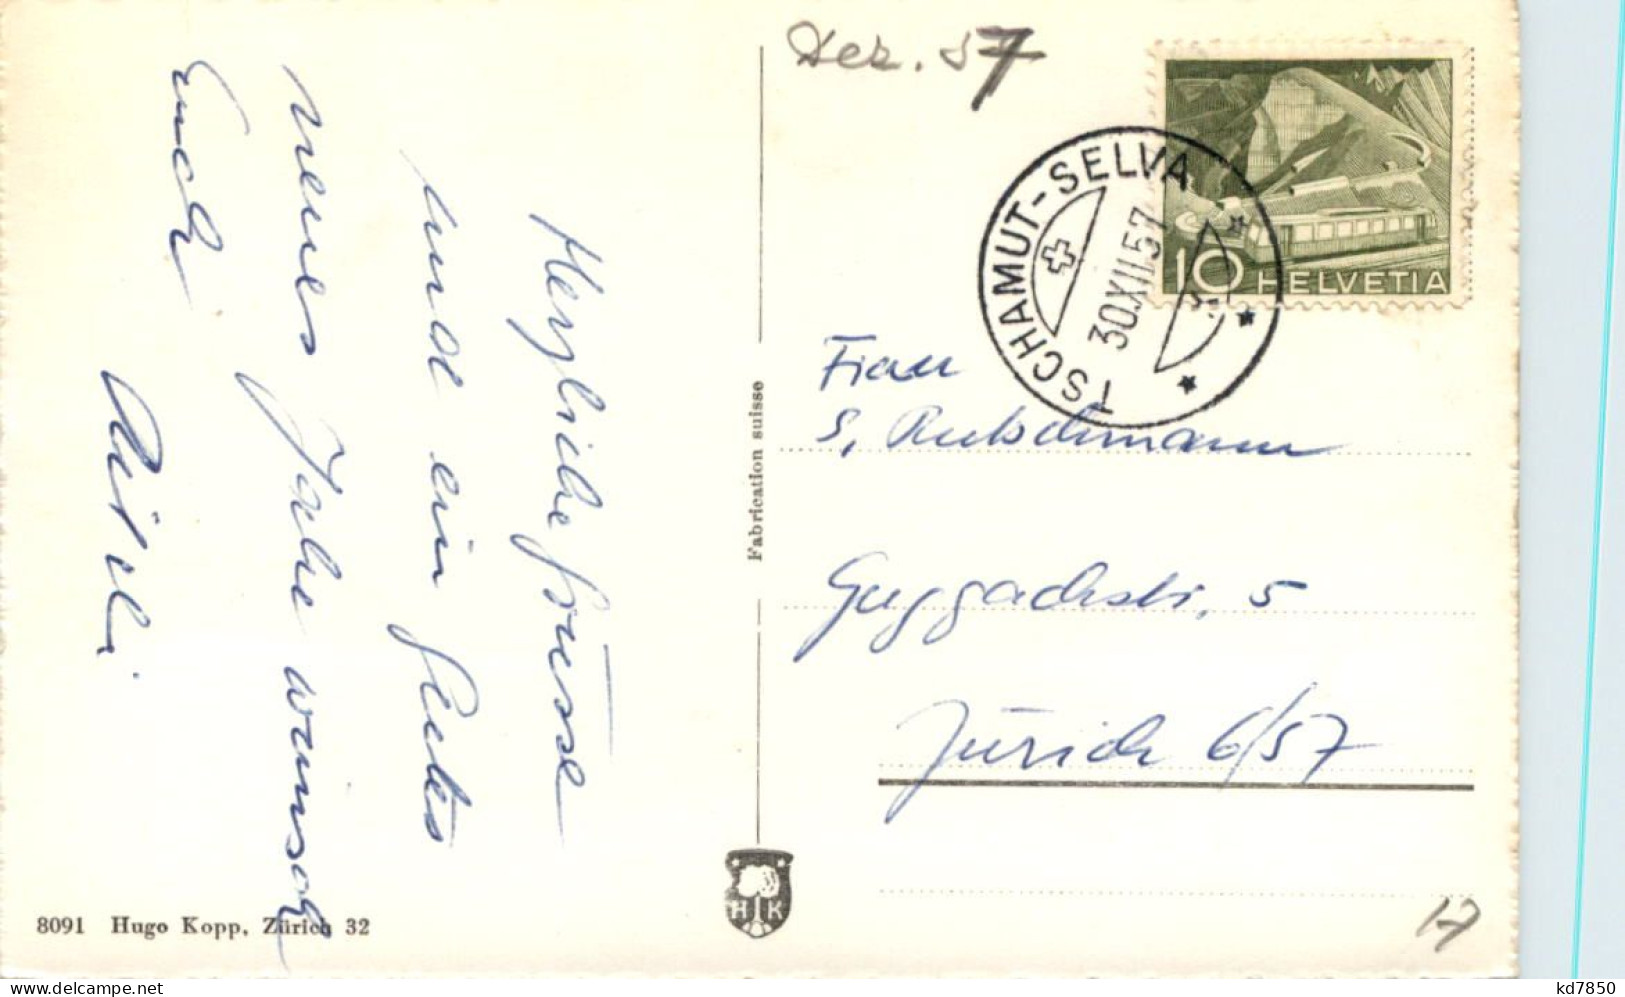 Dez. 57
TSCHAMUT-SELVA
30.XII.57
10 HELVETIA
Herzliche Grüsse
und ein gutes
neues Jahr wünsch
Euch
Frau
S. Rutschmann
Guggachstr. 5
Zürich 6/57
Fabrication suisse
HK
8091 Hugo Kopp, Zürich 32
17
www.delcampe.net
kd7850